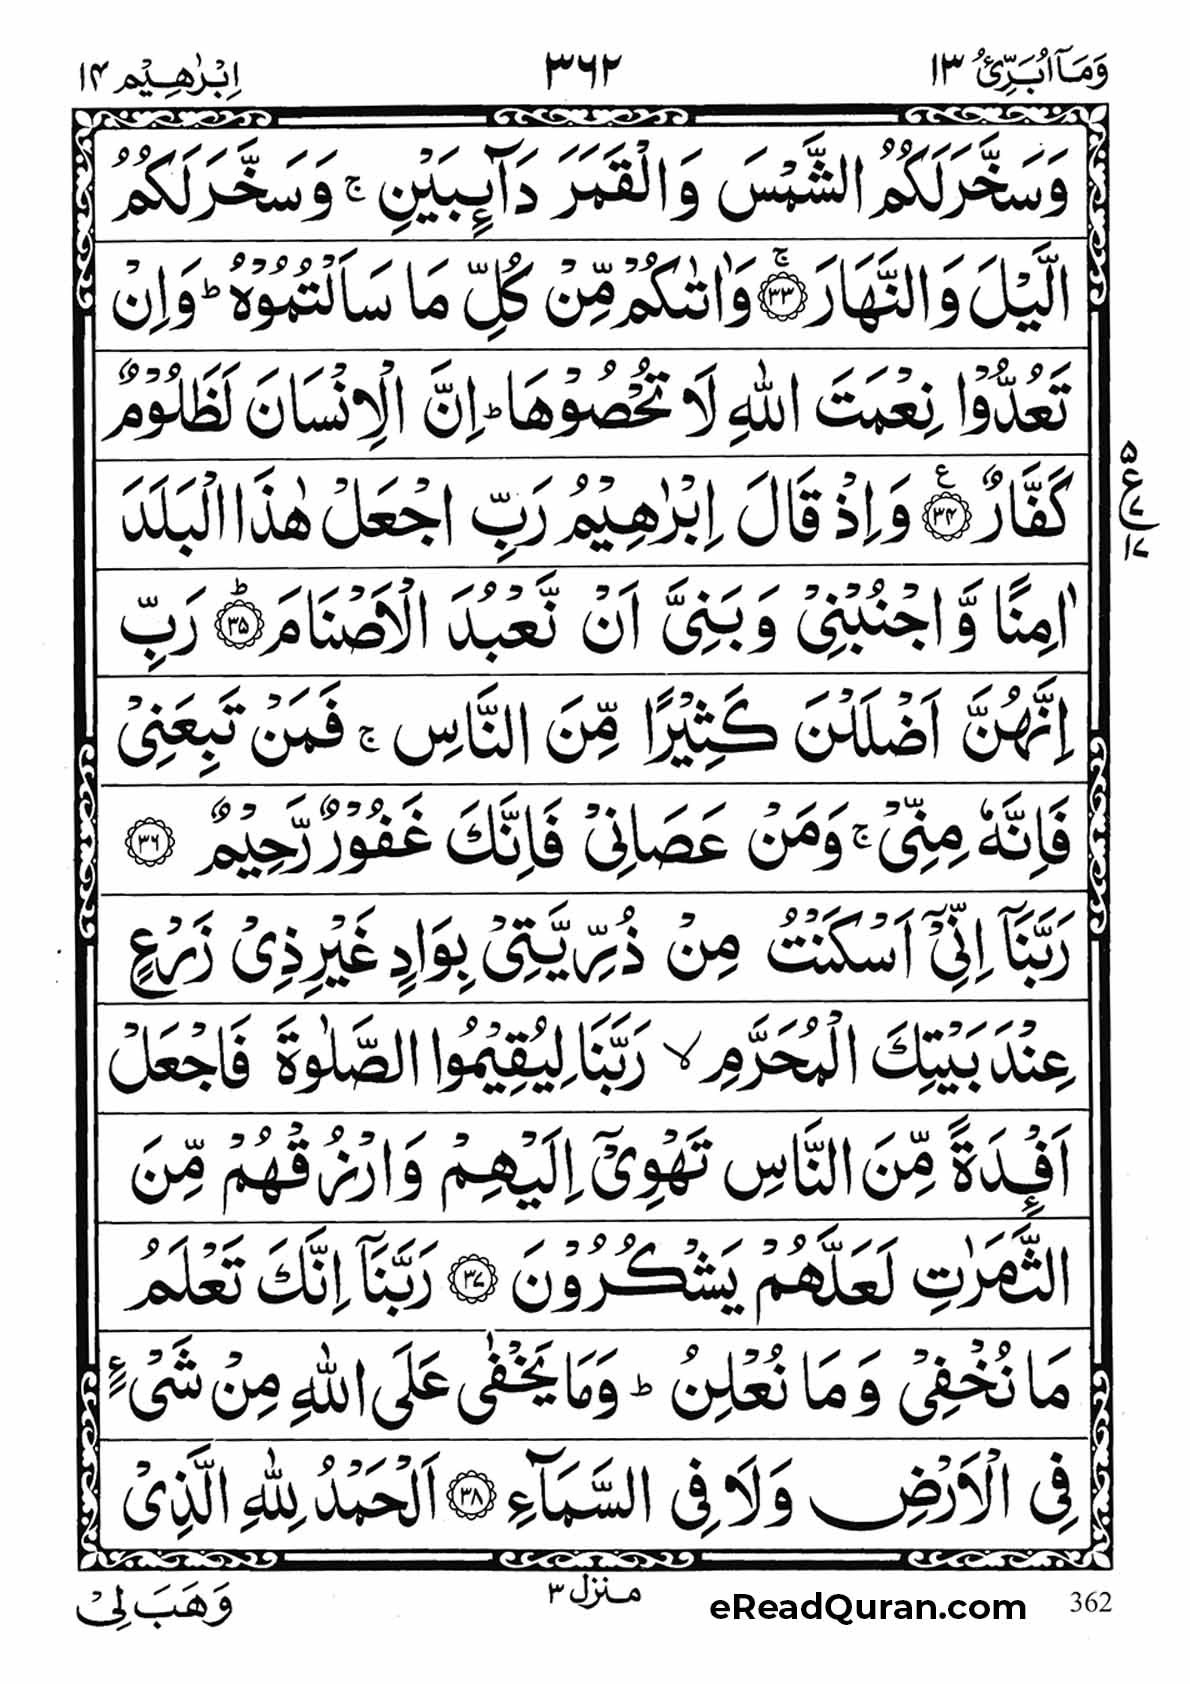 وَمَآ اُبَرِّئُ ۱۳ ۳۶۲ اِبْرٰهِيْم ۱۴
وَسَخَّرَ لَكُمُ الشَّمْسَ وَالْقَمَرَ دَآئِبَيْنِ ۚ وَسَخَّرَ لَكُمُ
الَّيْلَ وَالنَّهَارَ ۚ﴿۳۳﴾ وَاٰتٰىكُمْ مِّنْ كُلِّ مَا سَاَلْتُمُوْهُ ؕ وَاِنْ
تَعُدُّوْا نِعْمَتَ اللّٰهِ لَا تُحْصُوْهَا ؕ اِنَّ الْاِنْسَانَ لَظَلُوْمٌ
كَفَّارٌ ﴿۳۴﴾ ع وَاِذْ قَالَ اِبْرٰهِيْمُ رَبِّ اجْعَلْ هٰذَا الْبَلَدَ
اٰمِنًا وَّاجْنُبْنِيْ وَبَنِيَّ اَنْ نَّعْبُدَ الْاَصْنَامَ ؕ﴿۳۵﴾ رَبِّ
اِنَّهُنَّ اَضْلَلْنَ كَثِيْرًا مِّنَ النَّاسِ ۚ فَمَنْ تَبِعَنِيْ
فَاِنَّهٗ مِنِّيْ ۚ وَمَنْ عَصَانِيْ فَاِنَّكَ غَفُوْرٌ رَّحِيْمٌ ﴿۳۶﴾
رَبَّنَآ اِنِّيْٓ اَسْكَنْتُ مِنْ ذُرِّيَّتِيْ بِوَادٍ غَيْرِ ذِيْ زَرْعٍ
عِنْدَ بَيْتِكَ الْمُحَرَّمِ ۙ رَبَّنَا لِيُقِيْمُوا الصَّلٰوةَ فَاجْعَلْ
اَفْئِدَةً مِّنَ النَّاسِ تَهْوِيْٓ اِلَيْهِمْ وَارْزُقْهُمْ مِّنَ
الثَّمَرٰتِ لَعَلَّهُمْ يَشْكُرُوْنَ ﴿۳۷﴾ رَبَّنَآ اِنَّكَ تَعْلَمُ
مَا نُخْفِيْ وَمَا نُعْلِنُ ؕ وَمَا يَخْفٰى عَلَى اللّٰهِ مِنْ شَيْءٍ
فِي الْاَرْضِ وَلَا فِي السَّمَآءِ ﴿۳۸﴾ اَلْحَمْدُ لِلّٰهِ الَّذِيْ
وَهَبَ لِيْ منزل ۳ eReadQuran.com 362